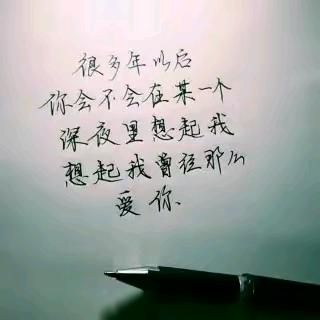 很多年以后
你会不会在某一个
深夜里想起我
想起我曾经那么
爱你、